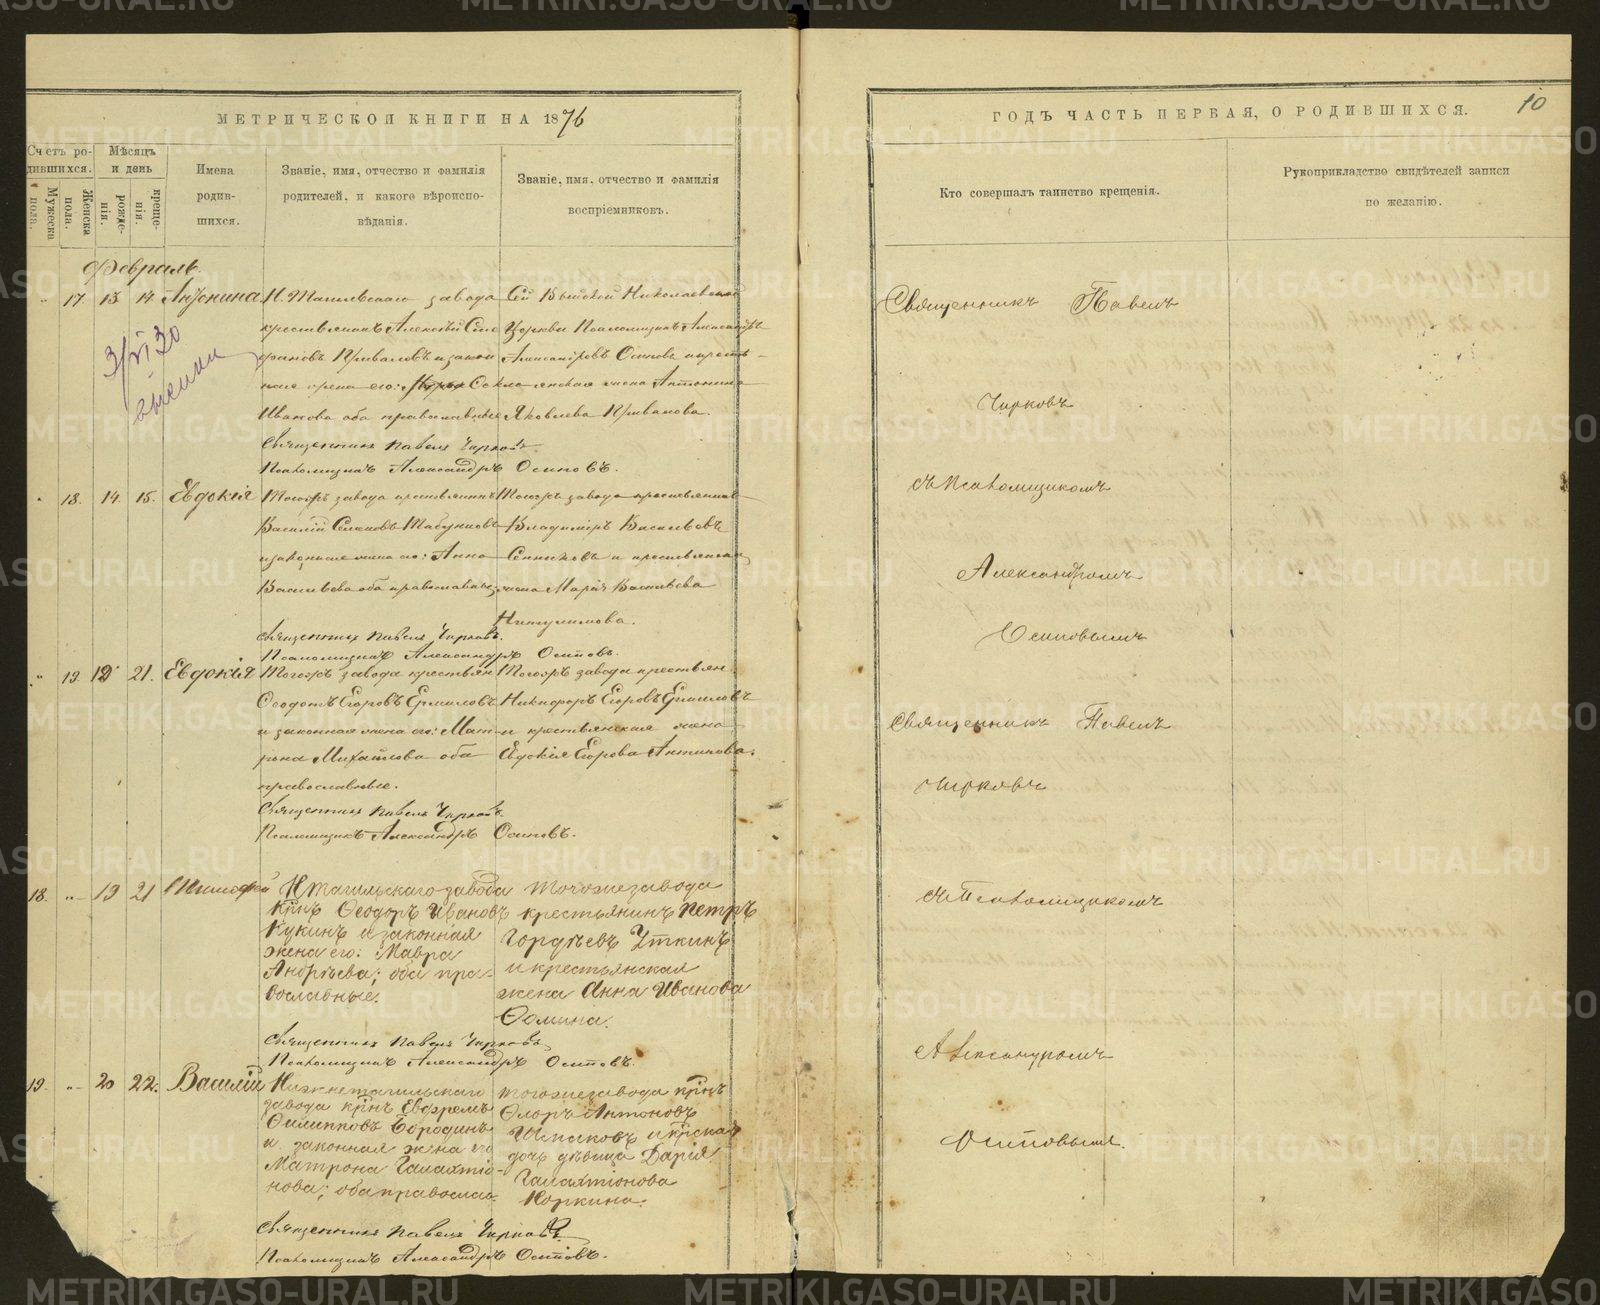 МЕТРИЧЕСКОЙ КНИГИ НА 1876
Счетъ родившихся.
Мужеска пола.
Женска пола.
Мѣсяцъ и день
рожденія.
крещенія.
Имена родившихся.
Званіе, имя, отчество и фамилія
родителей, и какого вѣроиспо-
вѣданія.
Званіе, имя, отчество и фамилія
воспріемниковъ.
Февраль.
17 13 14 Антонина
Н. Тагильскаго завода
крестьянинъ Алексѣй Сте
фановъ Приваловъ и закон
ная жена его:
Иванова оба православные
Сей Выйской Николаевской
Церкви Псаломщикъ Александръ
Александровъ Осиповъ и кресть-
янская жена Антонина
Яковлева Привалова.
Священникъ Павелъ Чирковъ
Псаломщикъ Александръ Осиповъ.
3/VI 30
18. 14. 15. Евдокія
Тогожъ завода крестьянинъ
Василій Семеновъ Табуновъ
и законная жена его: Анна
Васильева оба православные
Тогожъ завода крестьянинъ
Владимиръ Васильевъ
и крестьянская
жена Марія Васильева
Священникъ Павелъ Чирковъ.
Псаломщикъ Александръ Осиповъ.
19. 21. Евдокія
Тогожъ завода крестьян.
Ѳеодотъ Егоровъ Ермиловъ
и законная жена его: Мат-
рона Михайлова оба
православные.
Тогожъ завода крестьян.
Никифоръ Егоровъ Ермиловъ
и крестьянская жена
Евдокія Егорова Антипова.
Священникъ Павелъ Чирковъ
Псаломщикъ Александръ Осиповъ.
18. „ 19 21 Тимофей
Н Тагильскаго завода
кр͞нъ Ѳеодоръ Ивановъ
Кукинъ и законная
жена его: Мавра
Андрѣева; оба пра-
вославные.
тогоже завода
крестьянинъ Петръ
Гордѣевъ Уткинъ
и крестьянская
жена Анна Иванова
Ѳомина.
Священникъ Павелъ Чирковъ
Псаломщикъ Александръ Осиповъ.
19 „ 20 22. Василій
Нижнетагильскаго
завода кр͞нъ Евфремъ
Филипповъ Бородинъ
и законная жена его
Матрона Галактіо-
нова; оба православ.
тогоже завода кр͞нъ
Флоръ Антоновъ
дочь дѣвица Дарія
Галактіонова
Норкина.
Священникъ Павелъ Чирковъ
Псаломщикъ Александръ Осиповъ.
ГОДЪ ЧАСТЬ ПЕРВАЯ, О РОДИВШИХСЯ.
10
Кто совершалъ таинство крещенія.
Рукоприкладство свидѣтелей записи
по желанію.
Священникъ Павелъ
Чирковъ
съ Псаломщикомъ
Александромъ
Осиповымъ
Священникъ Павелъ
Чирковъ
съ Псаломщикомъ
Александромъ
Осиповымъ.
METRIKI.GASO-URAL.RU